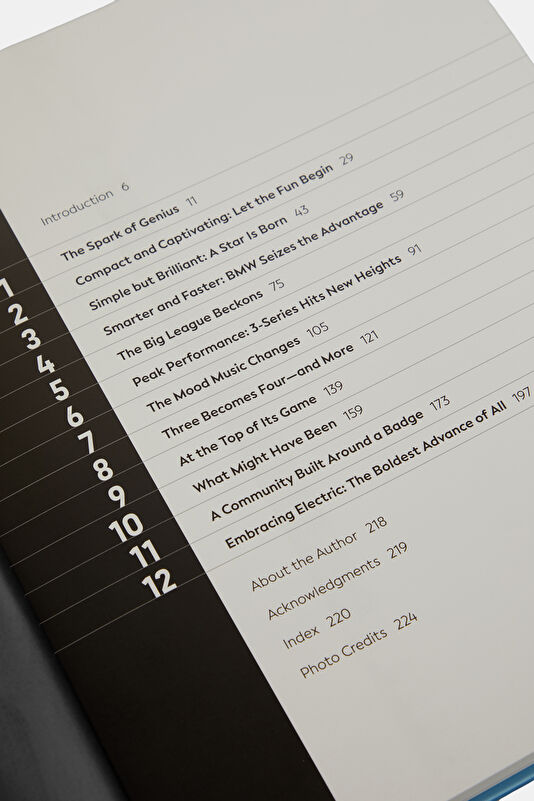 Introduction 6
1 The Spark of Genius 11
2 Compact and Captivating: Let the Fun Begin 29
3 Simple but Brilliant: A Star Is Born 43
4 Smarter and Faster: BMW Seizes the Advantage 59
5 The Big League Beckons 75
6 Peak Performance: 3-Series Hits New Heights 91
7 The Mood Music Changes 105
8 Three Becomes Four—and More 121
9 At the Top of Its Game 139
10 What Might Have Been 159
11 A Community Built Around a Badge 173
12 Embracing Electric: The Boldest Advance of All 197
About the Author 218
Acknowledgments 219
Index 220
Photo Credits 224